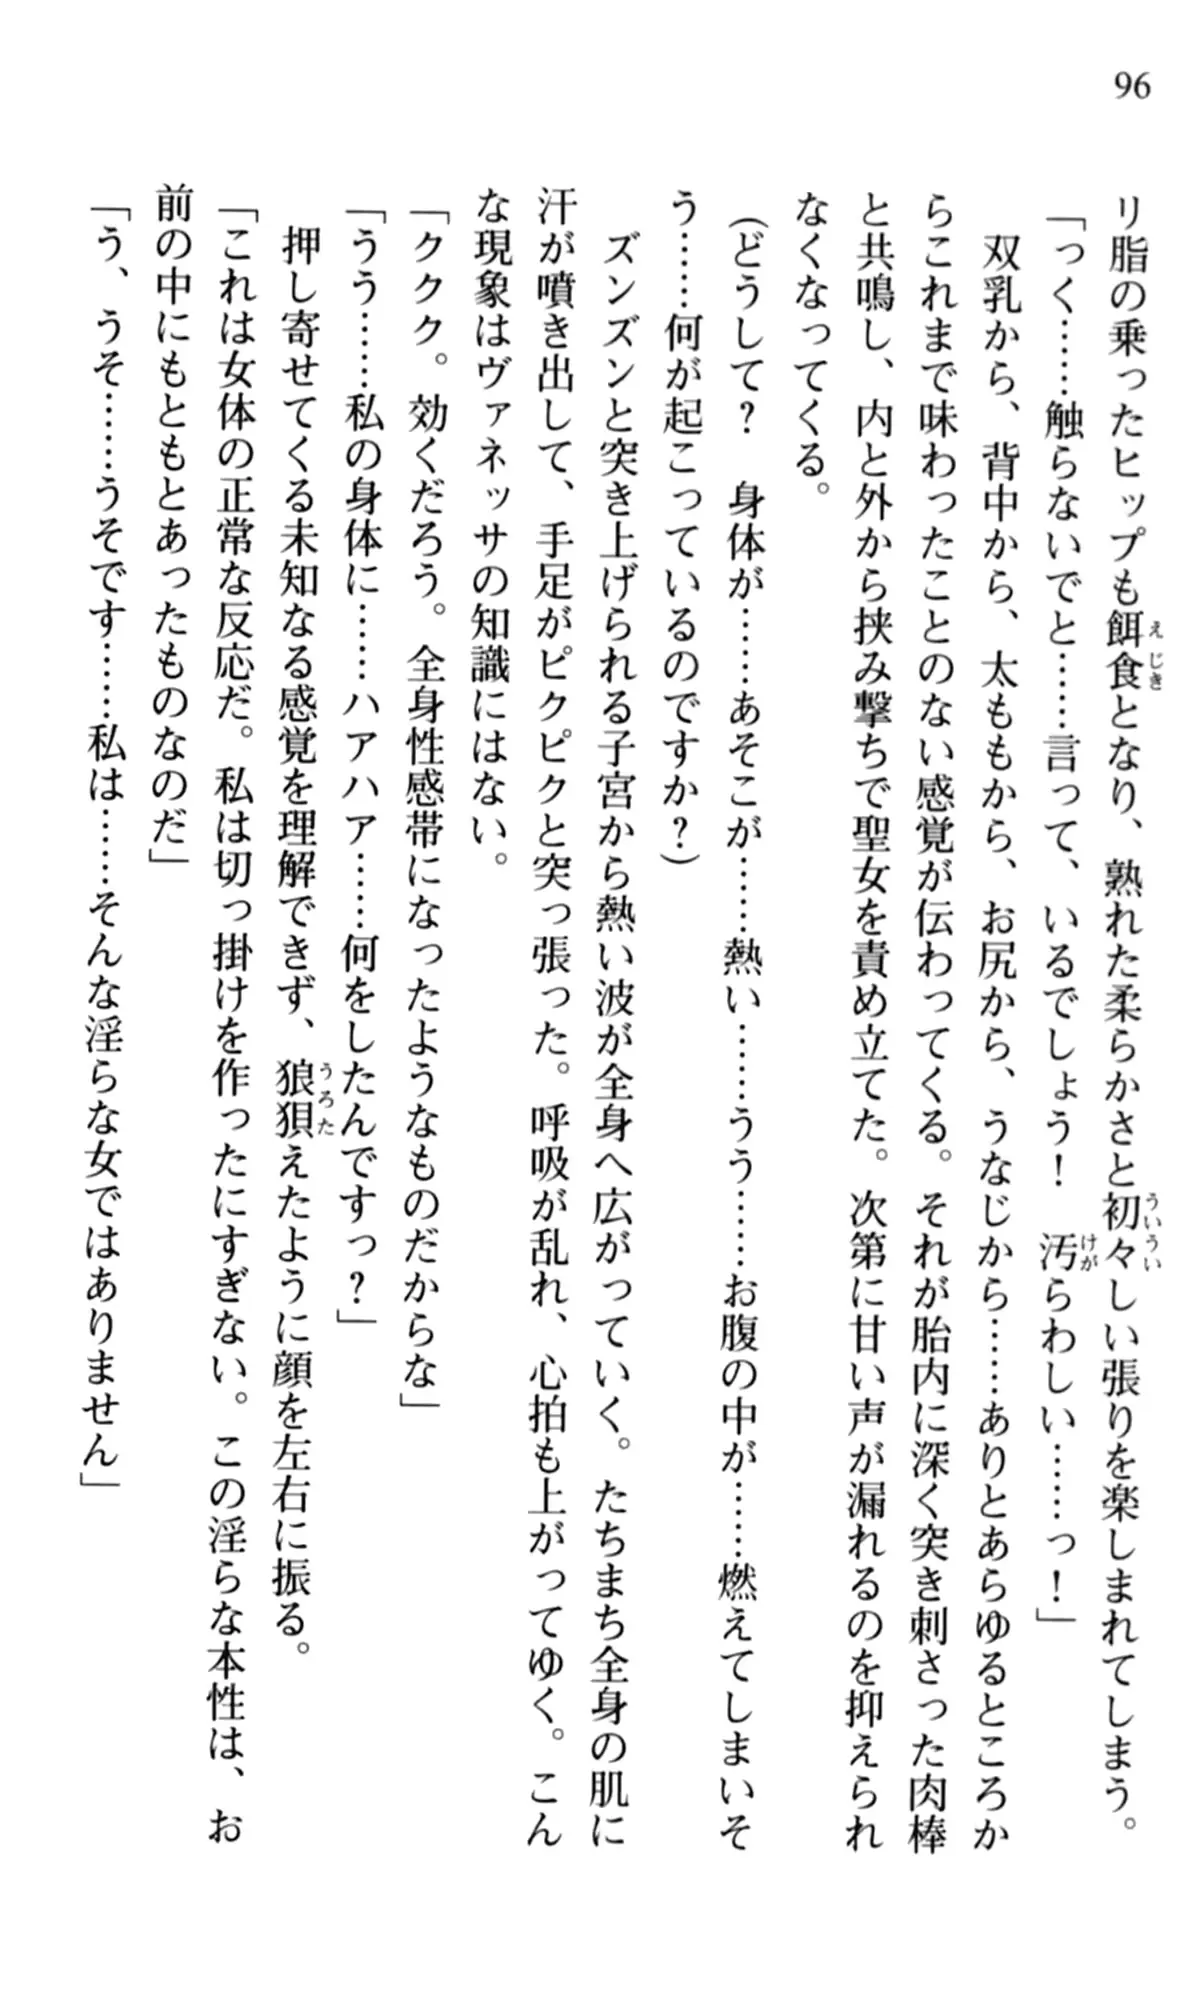 96
リ脂の乗ったヒップも餌食となり、熟れた柔らかさと初々しい張りを楽しまれてしまう。
「っく……触らないでと……言って、いるでしょう！　汚らわしい……っ！」
　双乳から、背中から、太ももから、お尻から、うなじから……ありとあらゆるところか
らこれまで味わったことのない感覚が伝わってくる。それが胎内に深く突き刺さった肉棒
と共鳴し、内と外から挟み撃ちで聖女を責め立てた。次第に甘い声が漏れるのを抑えられ
なくなってくる。
（どうして？　身体が……あそこが……熱い……うう……お腹の中が……燃えてしまいそ
う……何が起こっているのですか？）
　ズンズンと突き上げられる子宮から熱い波が全身へ広がっていく。たちまち全身の肌に
汗が噴き出して、手足がピクピクと突っ張った。呼吸が乱れ、心拍も上がってゆく。こん
な現象はヴァネッサの知識にはない。
「ククク。効くだろう。全身性感帯になったようなものだからな」
「うう……私の身体に……ハアハア……何をしたんですっ？」
　押し寄せてくる未知なる感覚を理解できず、狼狽えたように顔を左右に振る。
「これは女体の正常な反応だ。私は切っ掛けを作ったにすぎない。この淫らな本性は、お
前の中にもともとあったものなのだ」
「う、うそ……うそです……私は……そんな淫らな女ではありません」